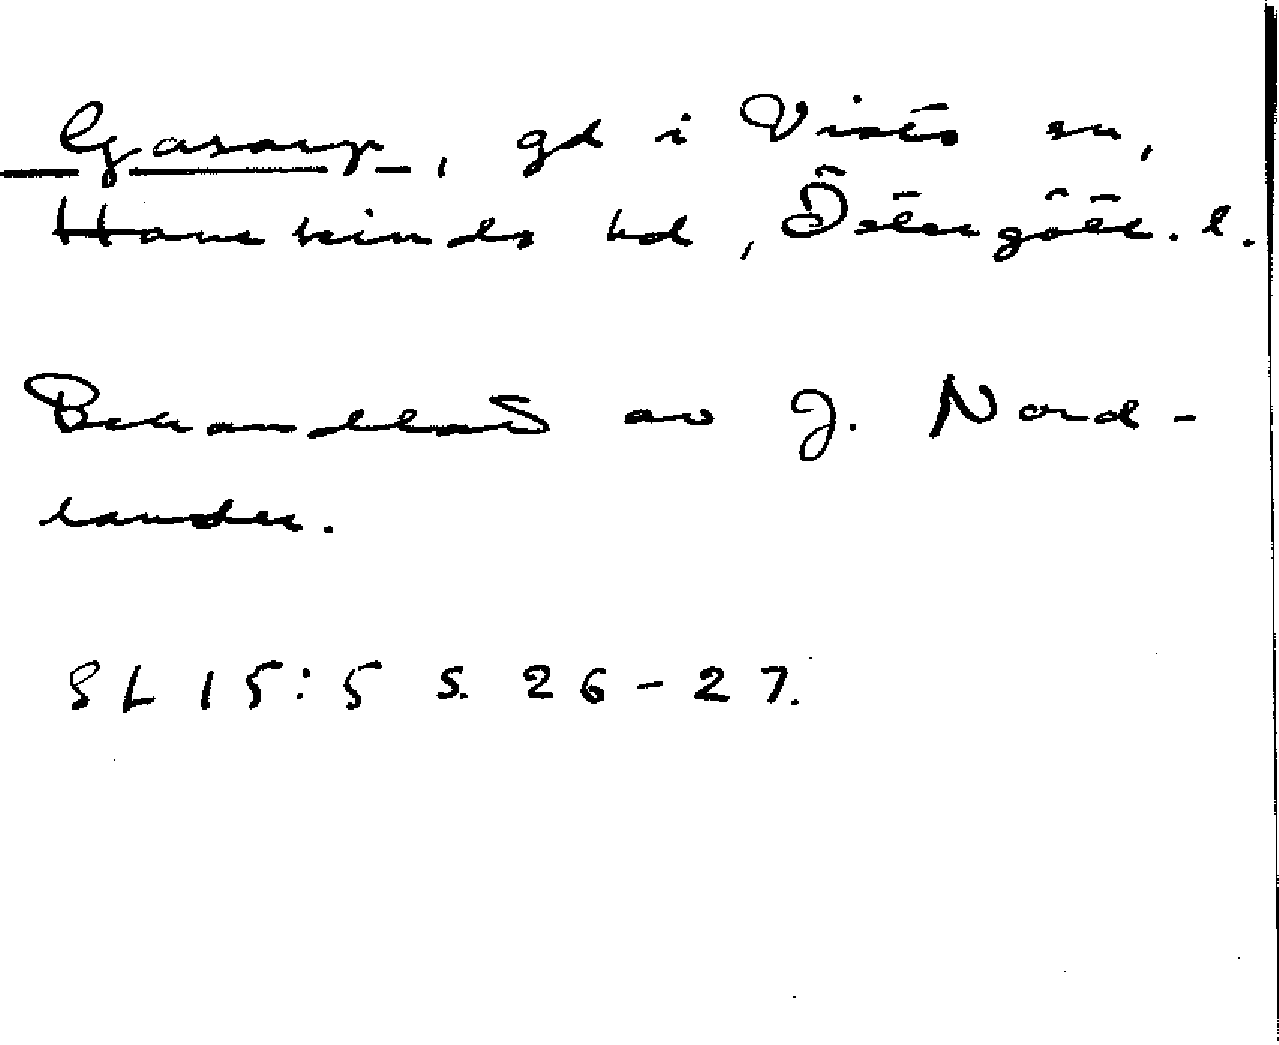 Gasarp, gd i Vists sn,
Hanekinds hd, Östergötl. l.
Behandlat av J. Nord-
lander.
SL 15:5 s. 26-27.